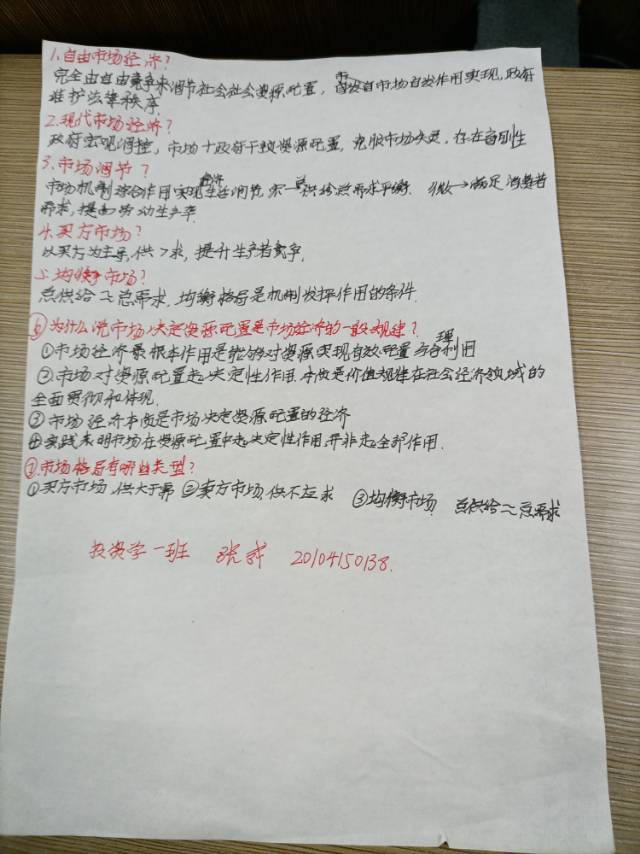 1.自由市场经济？
完全由自由竞争来调节社会社会资源配置，市场自发作用实现，政府
维护法律秩序.
2.现代市场经济？
政府宏观调控，市场+政府干预资源配置，克服市场失灵，存在盲目性
3.市场调节？
市场机制综合作用实现经济生活调节，求平衡. →满足消费者
需求，提高劳动生产率.
4.买方市场？
以买方为主导，供>求，提升生产者竞争.
5.均衡市场？
总供给≈总需求，均衡格局是机制发挥作用的条件.
⑥为什么说市场决定资源配置是市场经济的一般规律？
①市场经济最根本作用是能够对资源实现有效配置与合理利用
②市场对资源配置起决定性作用.本质是价值规律在社会经济领域的
全面贯彻和体现.
③市场经济本质是市场决定资源配置的经济
④实践表明市场在资源配置中起决定性作用.并非起全部作用.
⑦.市场格局有哪些类型？
①买方市场，供大于求 ②卖方市场，供不应求 ③均衡市场 总供给≈总需求
投资学一班 20104150138.